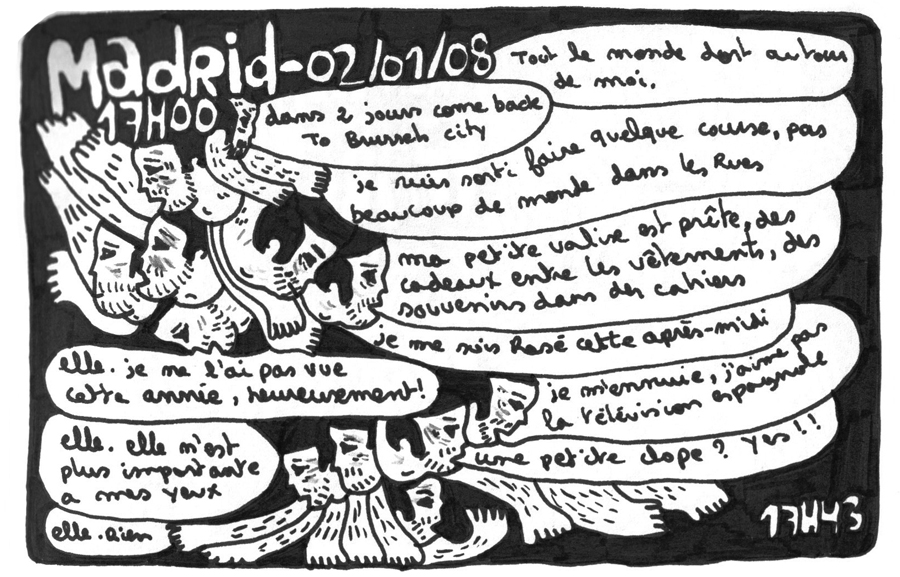 Madrid-02/01/08
17H00
Tout le monde dort autour
de moi.
dans 2 jours come back
To Brussels city
je suis sorti faire quelque course, pas
beaucoup de monde dans les Rues
ma petite valise est prête, des
cadeaux entre les vêtements, des
souvenirs dans des cahiers
je me suis Rasé cette après-midi
elle. je ne l'ai pas vue
cette année, heureusement!
je m'ennuie, j'aime pas
la télévision espagnole
elle. elle n'est
plus importante
a mes yeux
une petite clope? Yes!!
elle. rien
17H43